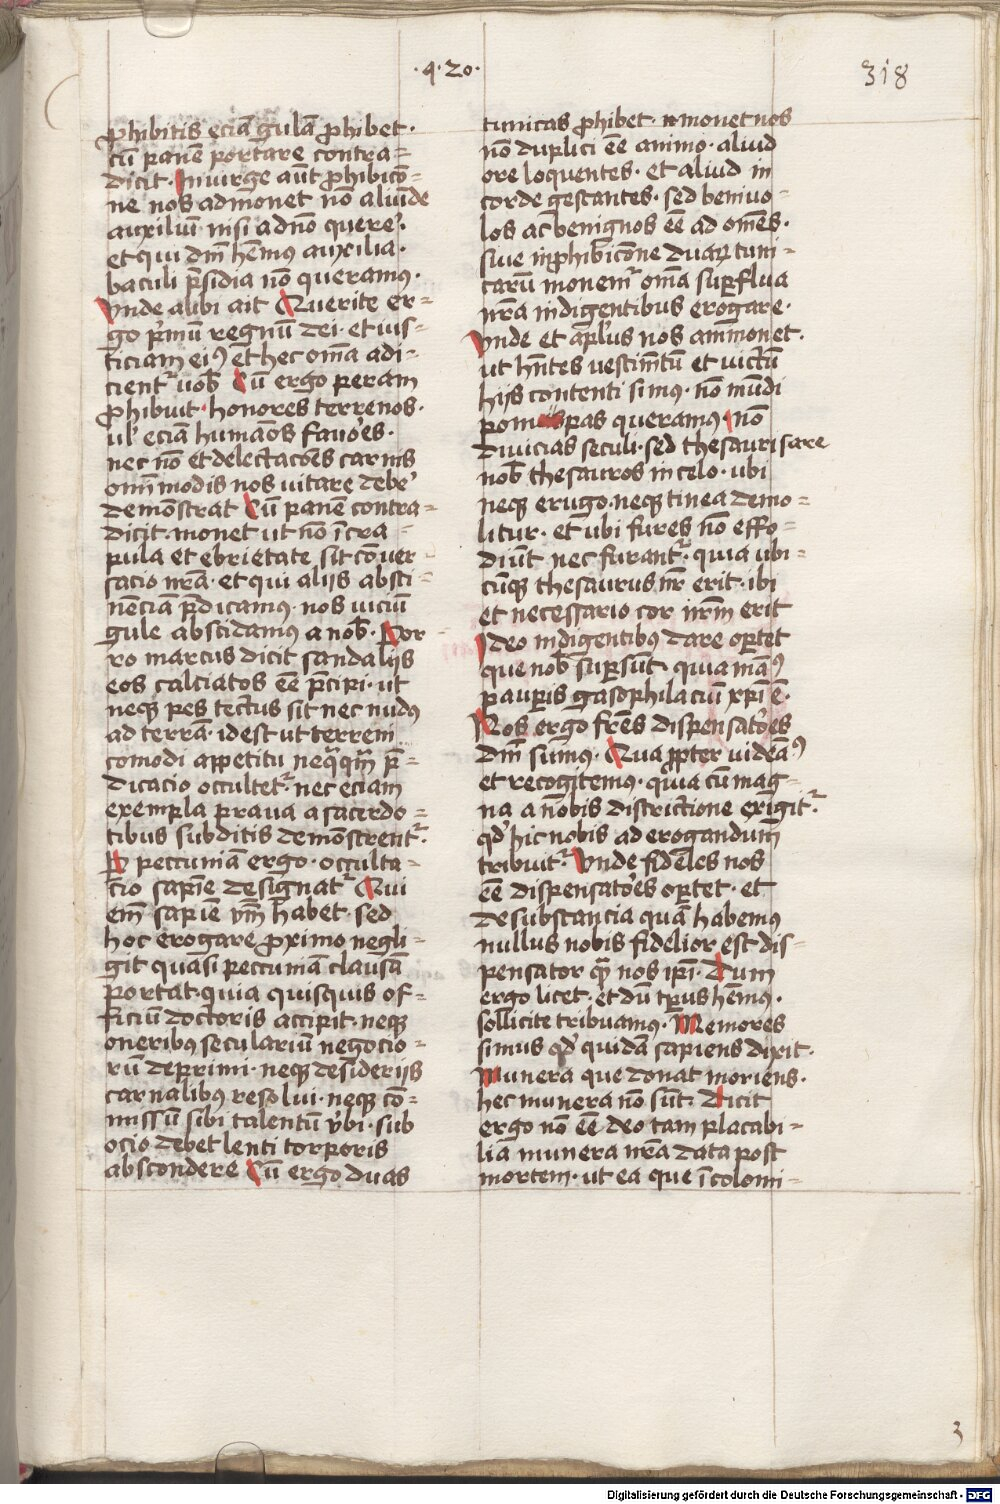 ·4·20·
318
ꝓhibitis eciā gulā ꝓhibet ·
Cū panē portare contra=
dicit · In uirge aūt ꝓhibicō=
ne nos admonet nō aliunde
auxiliū nisi a dnō querer̛
et qui dm̄ hēmus auxilia ·
baculi p̄sidia nō queramus ·
Vnde alibi ait Querite er=
go p̛mū regnū dei · et ius=
ticiam eiꝰ et hec om̄a adi=
cientʳ uob̄ Cū ergo peram
ꝓhibuit · honores terrenos ·
ul̛ eciā humanos fauōes ·
nec nō et delectacōes carnis
om̄imodis nos uitare debe̛
demonstrat Cū panē contra=
dicit · monet ut nō ī cra=
pula et ebrietate sit cōuer=
sacio nr̄a · et qui aliis absti=
nēciā p̄dicamus · nos uiciū
gule abscidamus a nob̄ · Por=
ro marcus dicit sandaliis
eos calciatos eē p̄cipi · ut
neqꝫ pes tectus sit nec nudꝰ
ad terrā · id est ut terreni
comodi appetitu neq̄q̄m p̄=
dicacio occultetʳ · nec eciam
exempla praua a sacerdo=
tibus subditis demonstrentʳ ·
Per peccuniā ergo · occulta=
cio sapīe designatʳ Qui
em̄ sapīe ūm habet · sed
hoc erogare proximo negli=
git quasi peccuniā clausā
portat · quia quisquis of=
ficiū doctoris accipit · neqꝫ
oneribus seculariū negocio=
rū deprimi · neqꝫ desideriis
carnalibus resolui · neqꝫ cō=
missū sibi talentū v̄bi · sub
ocio debet lenti torporis
abscondere Cū ergo duas
tunicas ꝓhibet · monet nos
nō duplici eē animo · aliud
ore loquentes · et aliud in
corde gestantes · sed beniuo=
los ac benignos eē ad om̄es ·
siue in ꝓhibicōne duaꝝ tuni=
carū monemʳ om̄a superflua
nr̄a indigentibus erogare ·
Vnde et ap̄lus nos ammonet ·
ut hn̄tes uestimtū et uictū
hiis contenti simus · nō mūdi
pompas queramus · nō
diuicias seculi · sed thesaurisare
nob̄ thesauros in celo · ubi
neqꝫ erugo · neqꝫ tinea demo=
litur · et ubi fures nō effo=
diūt nec furantʳ · quia ubi=
cūqꝫ thesaurus nr̄ erit · ibi
et necessario cor nr̄m erit
Ideo indigentibus dare oportet
que nob̄ supersūt · quia manꝰ
pauperis gasophilaciū xp̄i ē ·
Nos ergo frēs dispensatōes
dm̄ sumus · Qua ꝓpter uideāꝰ
et recogitemus · quia cū mag=
na a nobis districtione exigitʳ ·
qd̛ hic nobis ad erogandum
tribuitʳ Vnde fideles nos
eē dispensatōes oportet · et
de substancia quā habemus
nullus nobis fidelior est dis=
pensator q̄ nos ip̄i · Dum
ergo licet · et dū tp̄us hēmus ·
sollicite tribuamus · Memores
simus qd̛ quidā sapiens dixit ·
Munera que donat moriens ·
hec munera nō sūt · Dicit
ergo nō eē deo tam placabi=
lia munera nr̄a data post
mortem · ut ea que ī colomi=
3
Digitalisierung gefördert durch die Deutsche Forschungsgemeinschaft - DFG